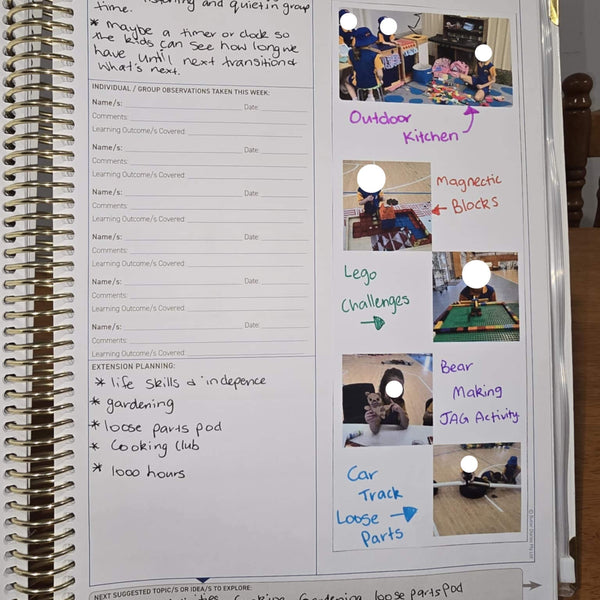 listening and quiet in group
time.
* maybe a timer or clock so
the kids can see how long we
have until next transition &
what's next.
INDIVIDUAL / GROUP OBSERVATIONS TAKEN THIS WEEK:
Name/s: Date:
Comments:
Learning Outcome/s Covered:
Name/s: Date:
Comments:
Learning Outcome/s Covered:
Name/s: Date:
Comments:
Learning Outcome/s Covered:
Name/s: Date:
Comments:
Learning Outcome/s Covered:
Name/s: Date:
Comments:
Learning Outcome/s Covered:
Name/s: Date:
Comments:
Learning Outcome/s Covered:
EXTENSION PLANNING:
* life skills & indepence
* gardening
* loose parts pod
* Cooking Club
* 1000 hours
Outdoor
Kitchen
Magnectic
Blocks
Lego
Challenges
Bear
Making
JAG Activity
Car
Track
Loose
Parts
NEXT SUGGESTED TOPIC/S OR IDEA/S TO EXPLORE:
Cooking Gardening loose parts pod